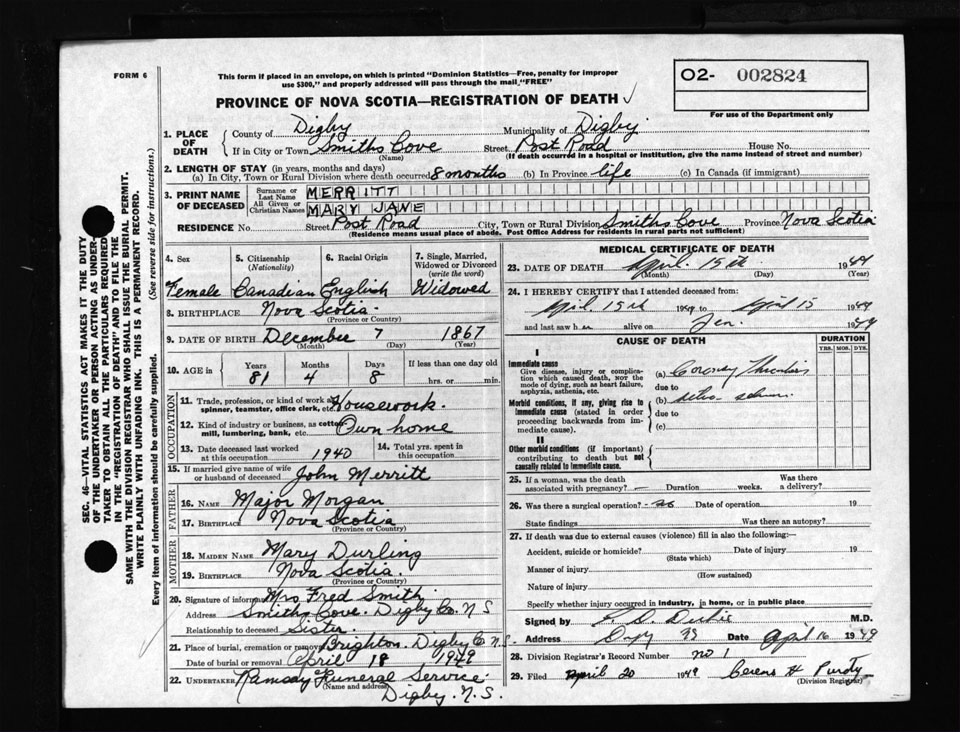 FORM 6
This form if placed in an envelope, on which is printed "Dominion Statistics—Free, penalty for improper
use $300," and properly addressed will pass through the mail "FREE"
O2- 002824
For use of the Department only
PROVINCE OF NOVA SCOTIA—REGISTRATION OF DEATH ✓
1. PLACE OF DEATH
County of Digby Municipality of Digby
If in City or Town Smiths Cove Street Post Road House No.
(Name) (If death occurred in a hospital or institution, give the name instead of street and number)
2. LENGTH OF STAY (in years, months and days)
(a) In City, Town or Rural Division where death occurred 8 months (b) In Province life (c) In Canada (if immigrant)
3. PRINT NAME OF DECEASED
Surname or Last Name MERRITT
All Given or Christian Names MARY JANE
RESIDENCE No. Street Post Road City, Town or Rural Division Smiths Cove Province Nova Scotia
(Residence means usual place of abode. Post Office Address for residents in rural parts not sufficient)
4. Sex 5. Citizenship (Nationality) 6. Racial Origin 7. Single, Married, Widowed or Divorced (write the word)
Female Canadian English Widowed
8. BIRTHPLACE Nova Scotia
(Province or Country)
9. DATE OF BIRTH December 7 1867
(Month) (Day) (Year)
10. AGE in Years Months Days If less than one day old
81 4 8 hrs. or min.
OCCUPATION
11. Trade, profession, or kind of work as spinner, teamster, office clerk, etc. Housework.
12. Kind of industry or business, as cotton mill, lumbering, bank, etc. Own home
13. Date deceased last worked at this occupation 1940 14. Total yrs. spent in this occupation
15. If married give name of wife or husband of deceased John Merritt
FATHER
16. NAME Major Morgan
17. BIRTHPLACE Nova Scotia
(Province or Country)
MOTHER
18. MAIDEN NAME Mary Durling
19. BIRTHPLACE Nova Scotia.
(Province or Country)
20. Signature of informant Mrs Fred Smith
Address Smiths Cove. Digby Co. N S
Relationship to deceased Sister.
21. Place of burial, cremation or removal Brighton. Digby Co N.S.
Date of burial or removal April 18 1949
22. UNDERTAKER Ramsay Funeral Service
(Name and address) Digby. N.S.
MEDICAL CERTIFICATE OF DEATH
23. DATE OF DEATH April 15th 1949
(Month) (Day) (Year)
24. I HEREBY CERTIFY that I attended deceased from:
April 15th 1949 to April 15 1949
and last saw her alive on Jan. 1949
CAUSE OF DEATH DURATION
YRS. MOS. DYS.
I
Immediate cause
Give disease, injury or complication which caused death, NOT the mode of dying, such as heart failure, asphyxia, asthenia, etc.
(a) Coronary Thrombosis
due to
Morbid conditions, if any, giving rise to immediate cause (stated in order proceeding backwards from immediate cause).
(b)
due to
(c)
II
Other morbid conditions (if important) contributing to death but not causally related to immediate cause.
25. If a woman, was the death associated with pregnancy? — Duration weeks. Was there a delivery?
26. Was there a surgical operation? no Date of operation 19
State findings Was there an autopsy?
27. If death was due to external causes (violence) fill in also the following:—
Accident, suicide or homicide? Date of injury 19
(State which)
Manner of injury
(How sustained)
Nature of injury
Specify whether injury occurred in industry, in home, or in public place
Signed by M.D.
Address Date April 16 1949
28. Division Registrar's Record Number no 1
29. Filed April 20 1949 H Purdy
(Division Registrar)
SEC. 46—VITAL STATISTICS ACT MAKES IT THE DUTY
OF THE UNDERTAKER OR PERSON ACTING AS UNDERTAKER
TO OBTAIN ALL THE PARTICULARS REQUIRED
IN THE "REGISTRATION OF DEATH" AND TO FILE THE
SAME WITH THE DIVISION REGISTRAR WHO SHALL ISSUE THE BURIAL PERMIT.
WRITE PLAINLY WITH UNFADING INK. THIS IS A PERMANENT RECORD.
Every item of information should be carefully supplied. (See reverse side for instructions.)